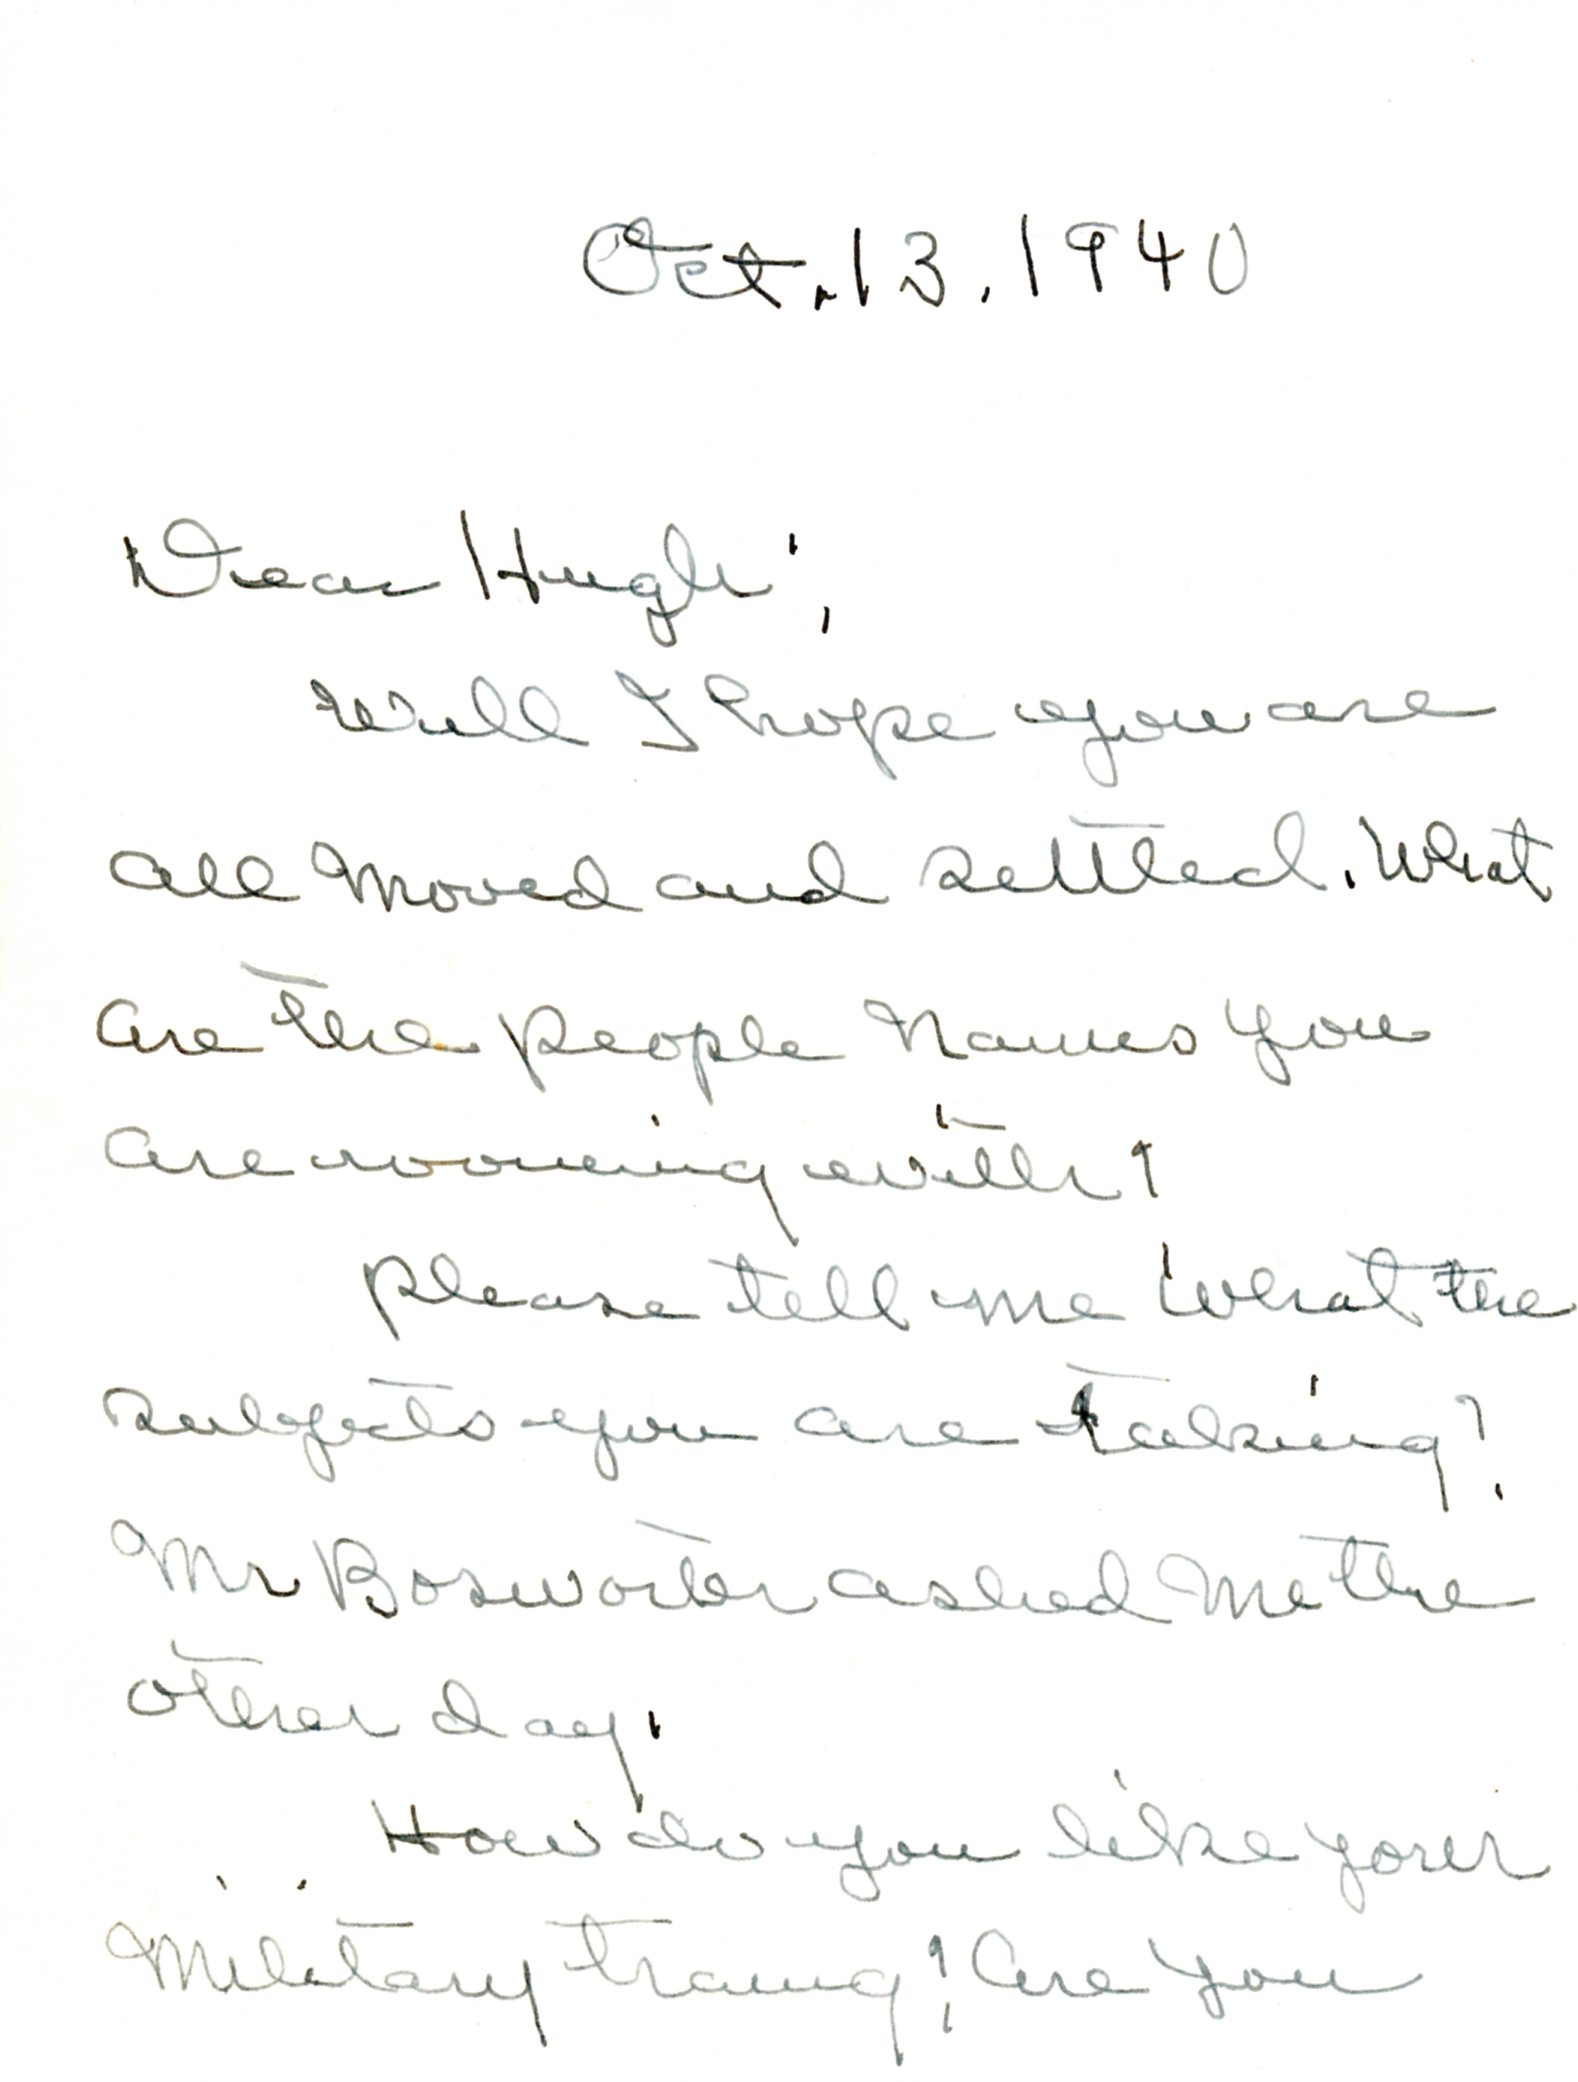 Oct. 13, 1940
Dear Hugh;
Well I hope you are
all moved and settled. What
are the people names you
are rooming with?
Please tell me what the
subjects you are taking?
Mr Bosworter asked me the
other day.
How do you like your
Military traing? Are you